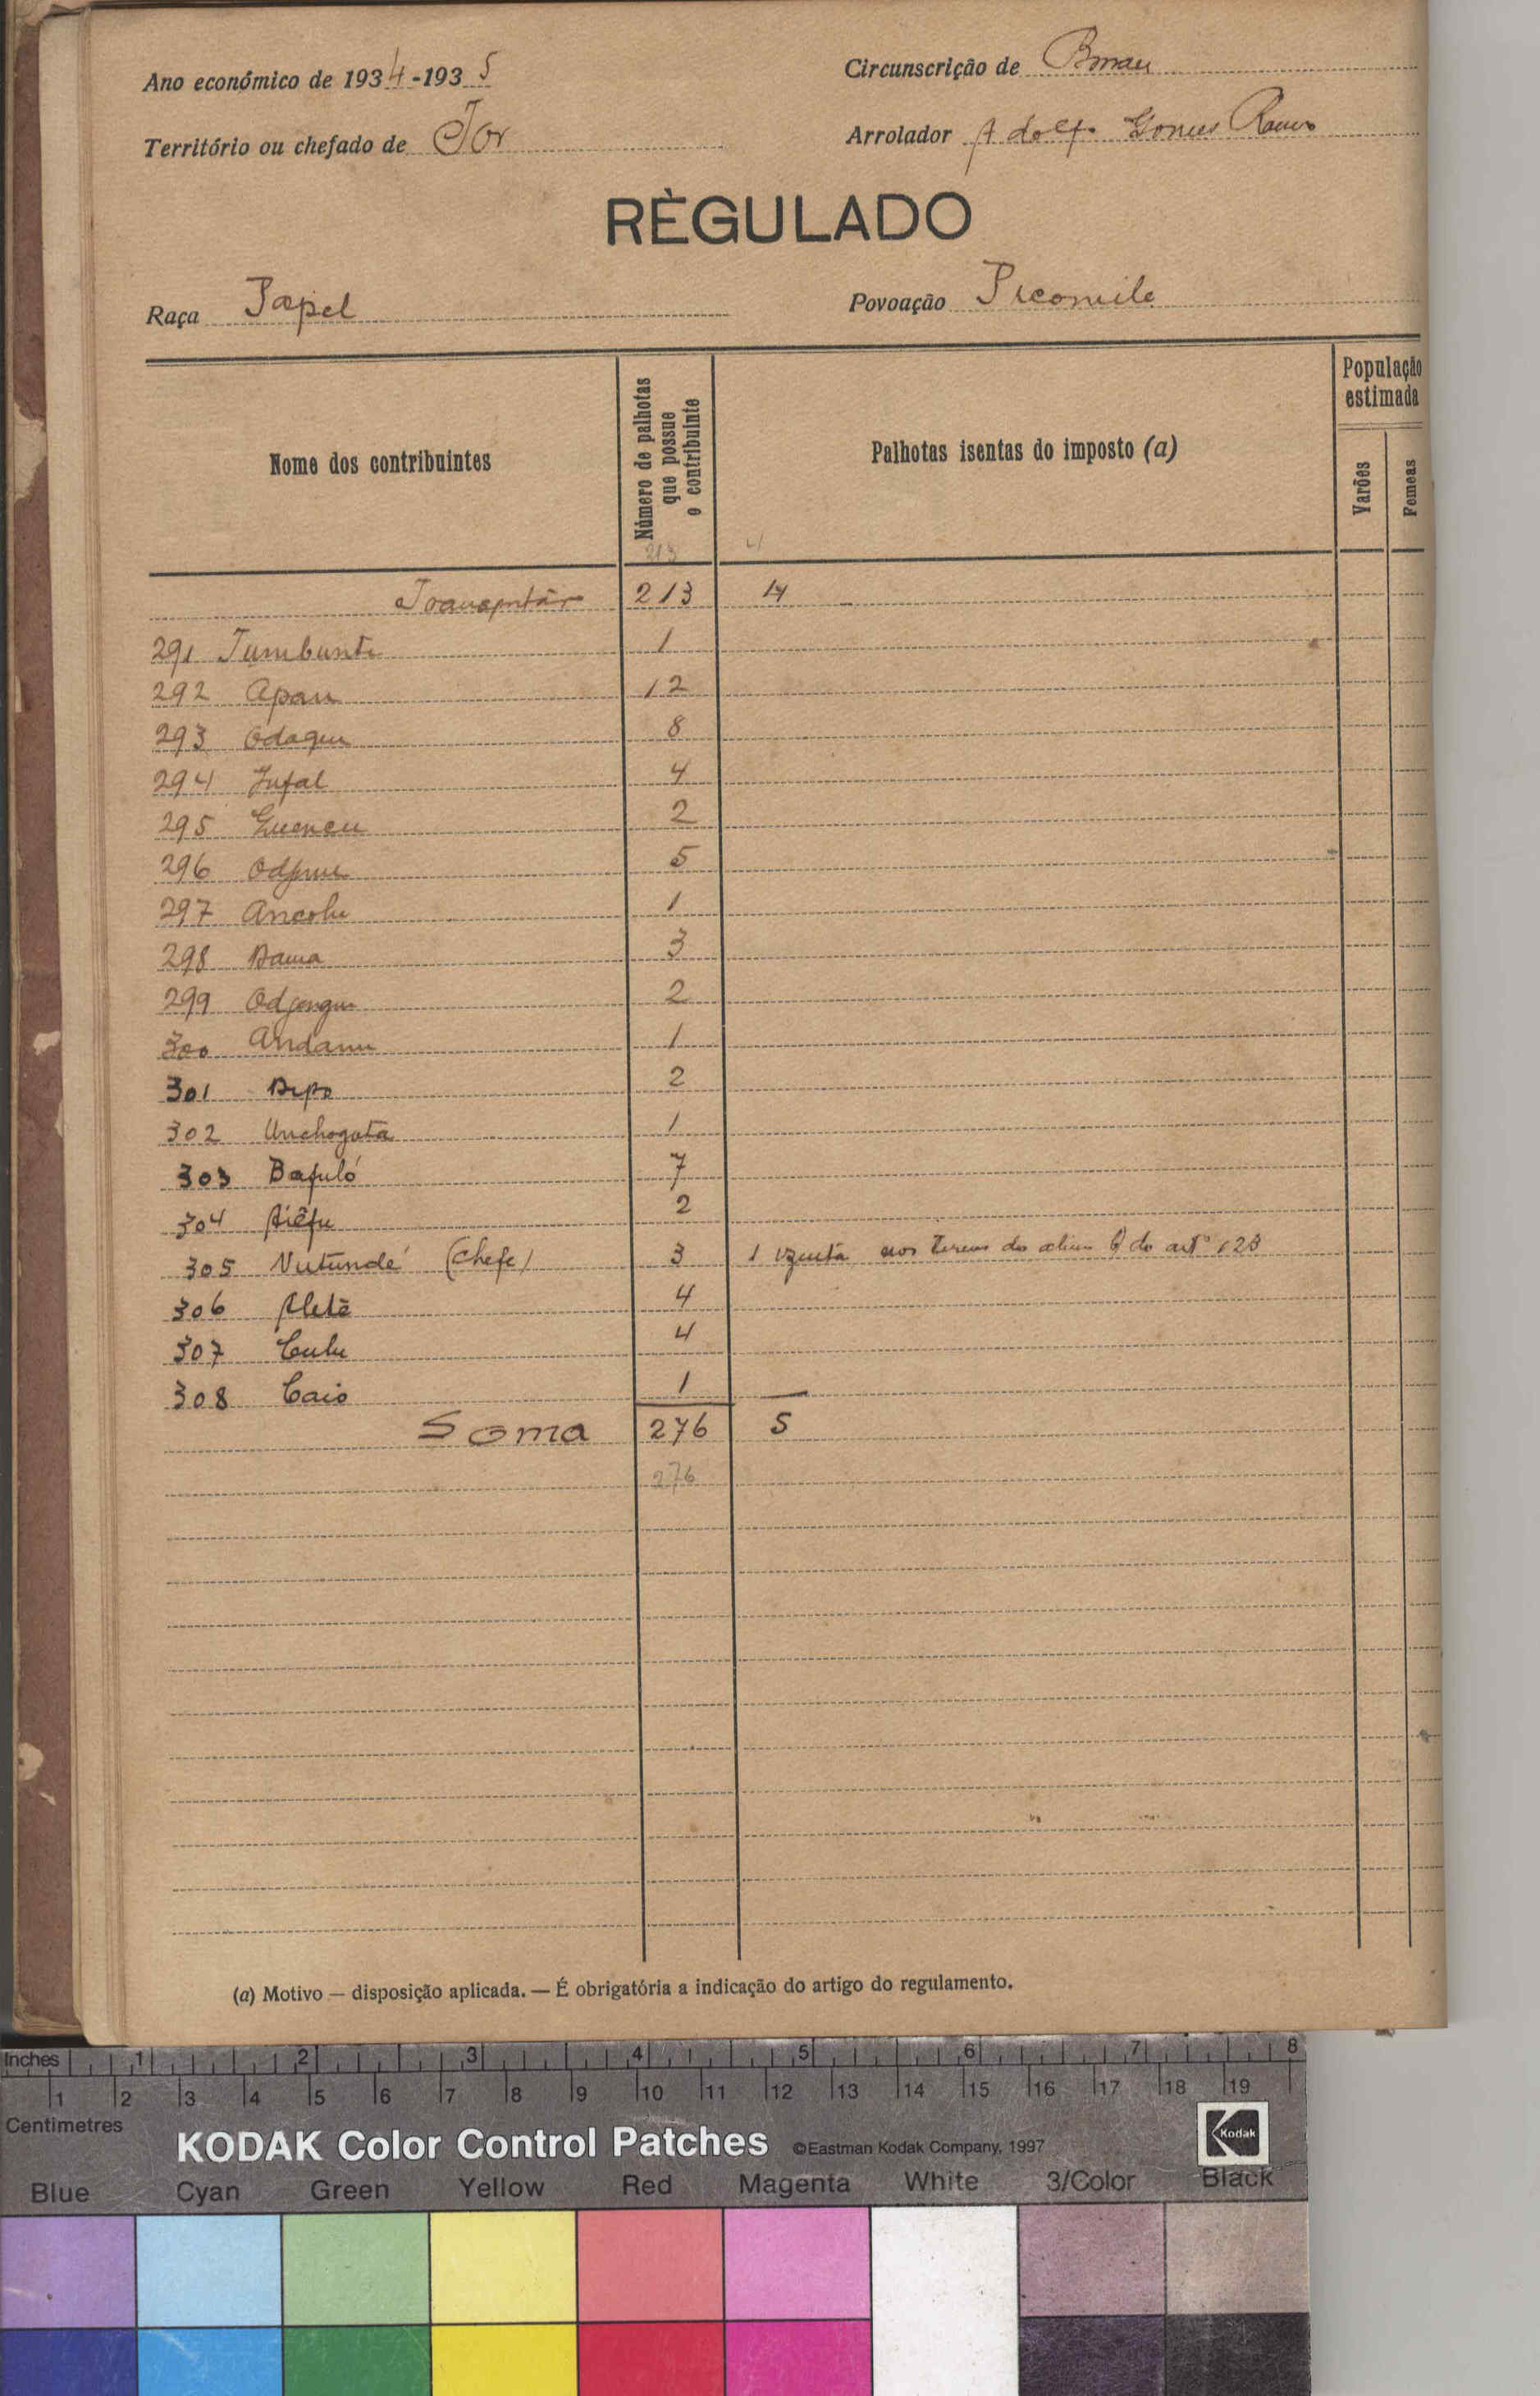 Ano económico de 1934-1935
Circunscrição de Bissau
Território ou chefado de Tor
Arrolador Adolfo Gomes Ramos
RÈGULADO
Raça Papel
Povoação
Nome dos contribuintes
Número de palhotas que possue o contribuinte
Palhotas isentas do imposto (a)
População estimada
Varões
Femeas
213 4
Transportar 213 4
291 1
292 Apau 12
293 Odaque 8
294 Jufal 4
295 2
296 5
297 Ancolu 1
298 3
299 2
300 1
301 2
302 Unchogata 1
303 Bafuló 7
304 2
305 (chefe) 3 1 izenta nos termos da do artº 123
306 Aletê 4
307 Culu 4
308 Caió 1
Soma 276 5
276
(a) Motivo — disposição aplicada. — É obrigatória a indicação do artigo do regulamento.
Inches 1 2 3 4 5 6 7 8
1 2 3 4 5 6 7 8 9 10 11 12 13 14 15 16 17 18 19
Centimetres
KODAK Color Control Patches ©Eastman Kodak Company, 1997 Kodak
Blue Cyan Green Yellow Red Magenta White 3/Color Black